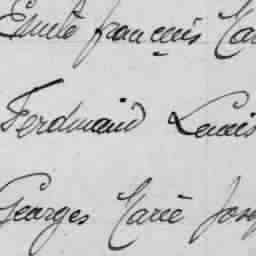 Emile françois
Ferdinand Louis
Georges Marie